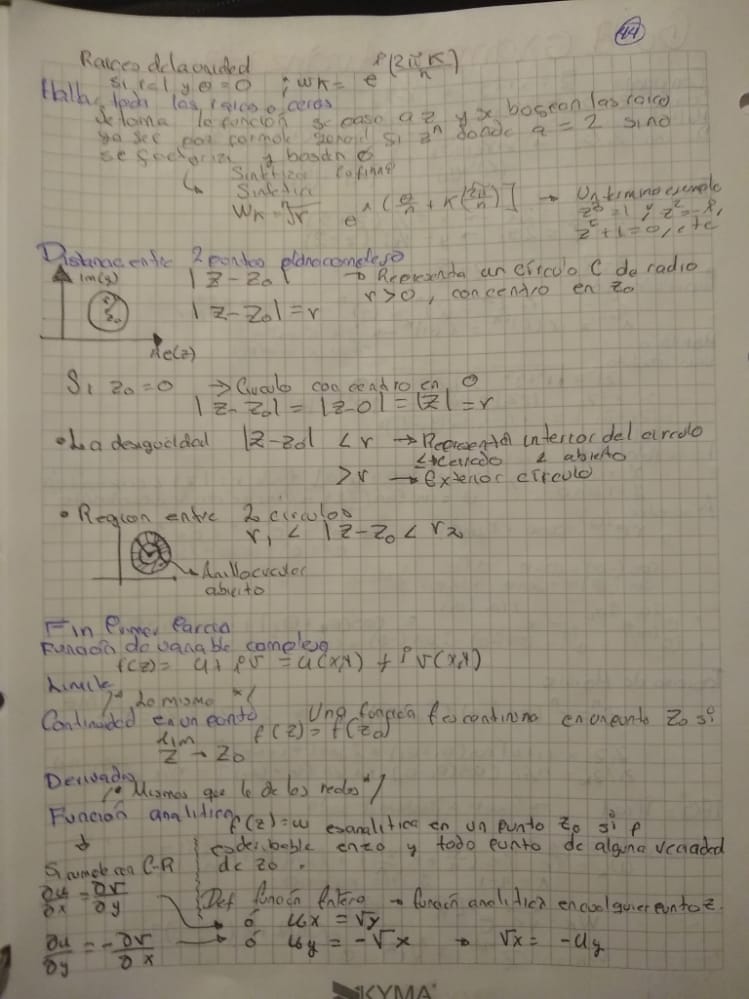 44
Raices de la unidad
Si r=1 y θ=0 ; wk= e^i(2πK/n)
Halla toda las raices o ceros
Se toma la función se pasa a z y x boscan las raices
ya sea por formula general si z^n donde n = 2 sino
se factoriza y boscan
Sintetiza
Wk = ⁿ√r e^i[θ/n + K(2π/n)] → Un termino ejemplo
z³=1 ; z²=-i,
z⁵+1=0, etc
Distancia entre 2 puntos plano complejo
Im(z)
|z-z₀| → Representa un círculo C de radio
r>0, con centro en z₀
|z-z₀|=r
z₀
Re(z)
Si z₀=0 → Circulo con centro en 0
|z-z₀| = |z-0| = |z| = r
• La desigualdad |z-z₀| < r → Representa interior del circulo
≤ → cerrado < abierto
> r → Exterior círculo
• Region entre 2 circulos
r₁ < |z-z₀ < r₂
→ Anillo circular
abierto
Fin Primer Parcial
Función de variable compleja
f(z)= u+iv = u(x,y) + i v(x,y)
Limite
/* Lo mismo */
Continuidad en un punto Una función f es continua en un punto z₀ si
lim f(z)=f(z₀)
z→z₀
Derivada
/* Mismas que la de los reales */
Función analitica f(z)=w es analítica en un punto z₀ si f
es deribable en z₀ y todo punto de alguna vecindad
de z₀.
Si cumple con C-R
∂u/∂x = ∂v/∂y
Def función Entera → función analitica en cualquier punto z.
ó ux = vy
∂u/∂y = -∂v/∂x → ó uy = -vx → vx = -uy
KYMA